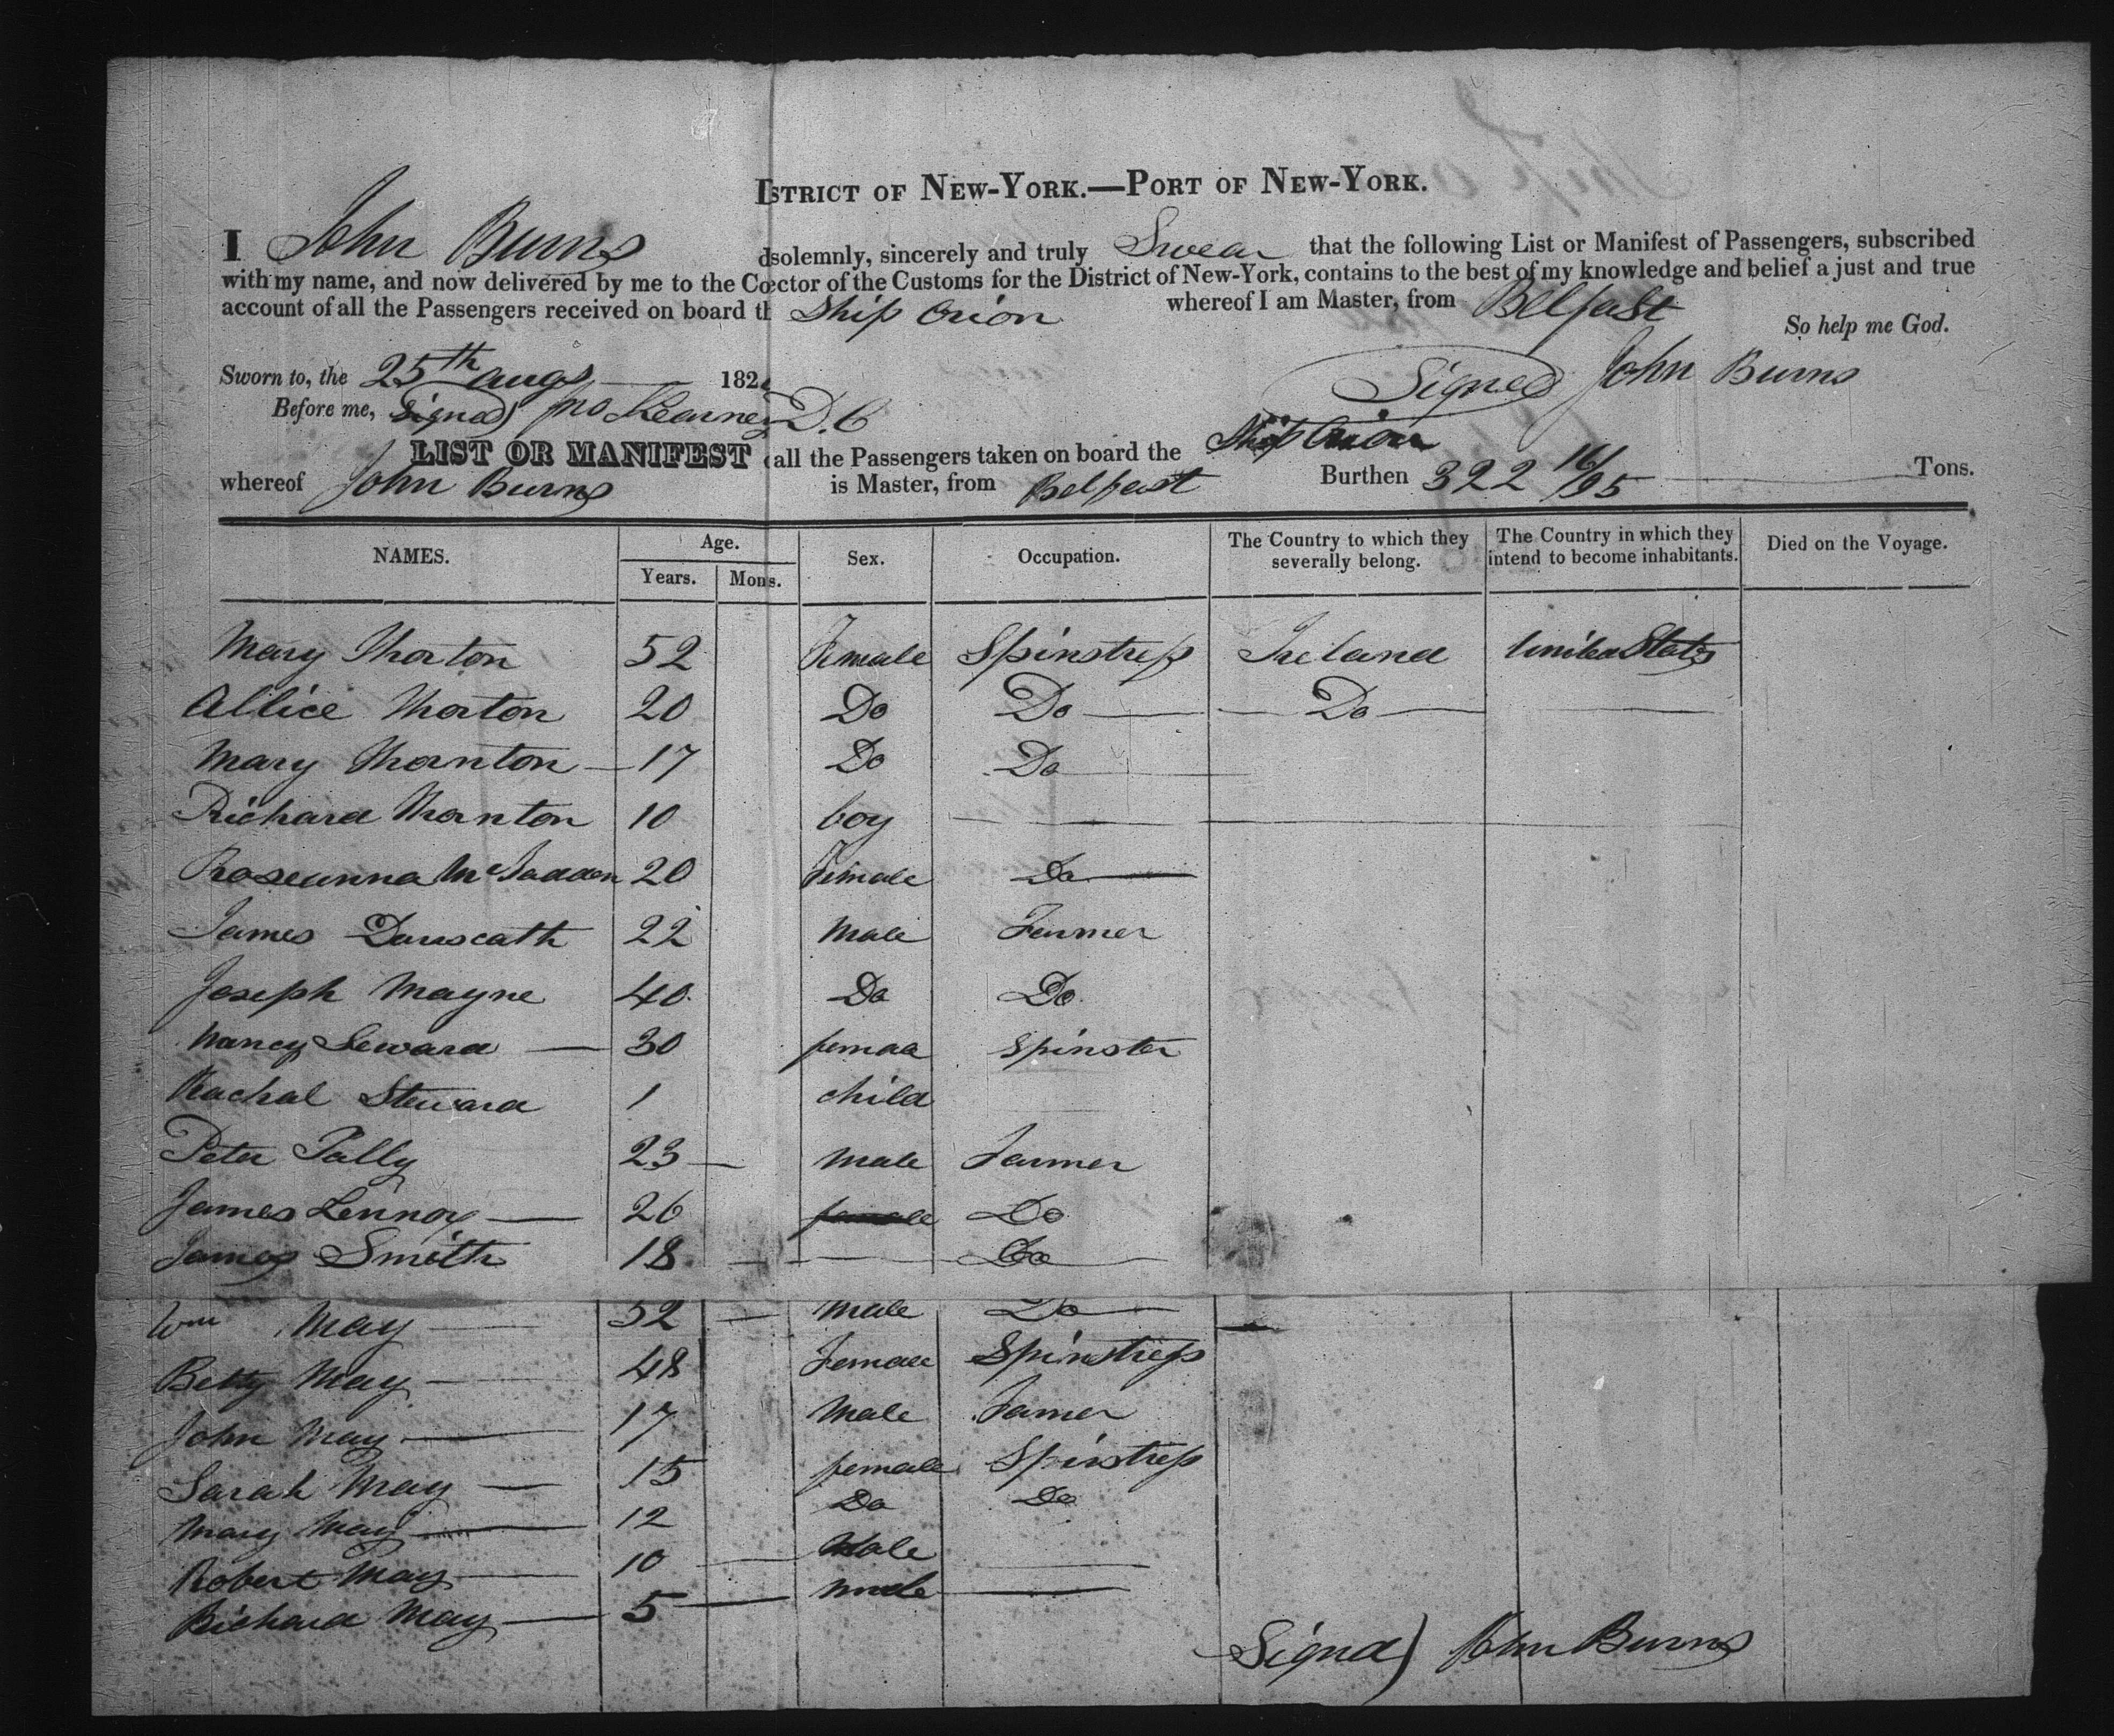 ISTRICT OF NEW-YORK.—PORT OF NEW-YORK.
I John Burns dsolemnly, sincerely and truly Swear that the following List or Manifest of Passengers, subscribed
with my name, and now delivered by me to the Coector of the Customs for the District of New-York, contains to the best of my knowledge and belief a just and true
account of all the Passengers received on board th Ship Orion whereof I am Master, from Belfast
So help me God.
Sworn to, the 25th Augs 182
Signed John Burns
Before me, Signed) Jno Kearney D.C
LIST OR MANIFEST all the Passengers taken on board the Ship Orion
whereof John Burns is Master, from Belfast Burthen 322 16/95 Tons.
NAMES. Age. Years. Mons. Sex. Occupation. The Country to which they severally belong. The Country in which they intend to become inhabitants. Died on the Voyage.
Mary Thorton 52 Female Spinstress Ireland United States
Allice Thorton 20 Do Do Do
Mary Thornton 17 Do Do
Richard Thornton 10 boy
Roseanna McFadden 20 Female Do
James 22 Male Farmer
Joseph Mayne 40 Do Do
Nancy Seward 30 female Spinster
Rachal Steward 1 child
Peter Tally 23 Male Farmer
James Lennox 26 female Do
James Smith 18 Do
Wm May 52 Male Do
Betty May 48 Female Spinstress
John May 17 Male Farmer
Sarah May 15 female Spinstress
Mary May 12 Do Do
Robert May 10 Male
Richard May 5 male
Signed) John Burns